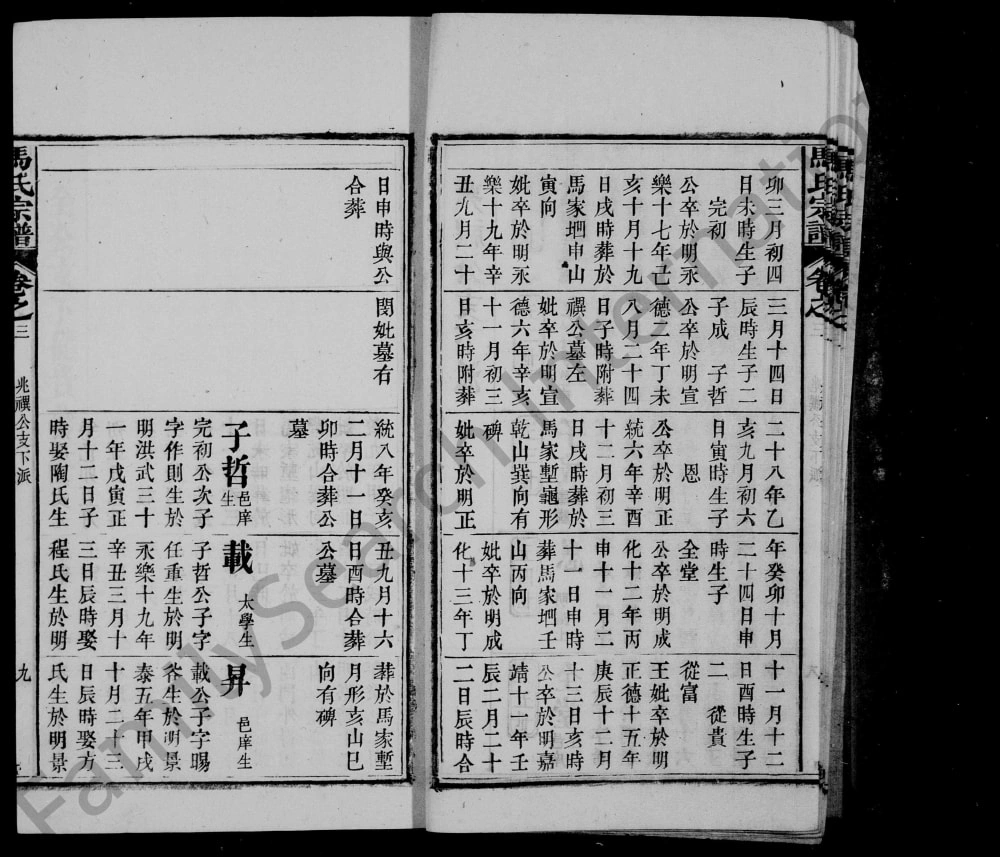 卯三月初四
日未時生子
完初
公卒於明永
樂十七年己
亥十月十九
日戌時葬於
馬家垇申山
寅向
妣卒於明永
樂十九年辛
丑九月二十
三月十四日
辰時生子二
子成　子哲
公卒於明宣
德二年丁未
八月二十四
日子時附葬
禩公墓左
妣卒於明宣
德六年辛亥
十一月初三
日亥時附葬
二十八年乙
亥九月初六
日寅時生子
恩
公卒於明正
統六年辛酉
十二月初三
日戌時葬於
馬家塹龜形
乾山巽向有
碑
妣卒於明正
年癸卯十月
二十四日申
時生子
全堂
公卒於明成
化十二年丙
申十一月二
十一日申時
葬馬家垇壬
山丙向
妣卒於明成
化十三年丁
十一月十二
日酉時生子
二　從貴
從富
王妣卒於明
正德十五年
庚辰十二月
十三日亥時
公卒於明嘉
靖十一年壬
辰二月二十
二日辰時合
日申時與公
合葬
閔妣墓右
統八年癸亥
二月十一日
卯時合葬公
墓
子哲　邑庠生
完初公次子
字作則生於
明洪武三十
一年戊寅正
月十二日子
時娶陶氏生
丑九月十六
日酉時合葬
公墓
載　太學生
子哲公子字
任重生於明
永樂十九年
辛丑三月十
三日辰時娶
程氏生於明
葬於馬家塹
月形亥山巳
向有碑
昇　邑庠生
載公子字賜
谷生於明景
泰五年甲戌
十月二十三
日辰時娶方
氏生於明景
馬氏宗譜　卷之三　兆禩公支下派　九
馬氏宗譜　卷之三
FamilySearch International